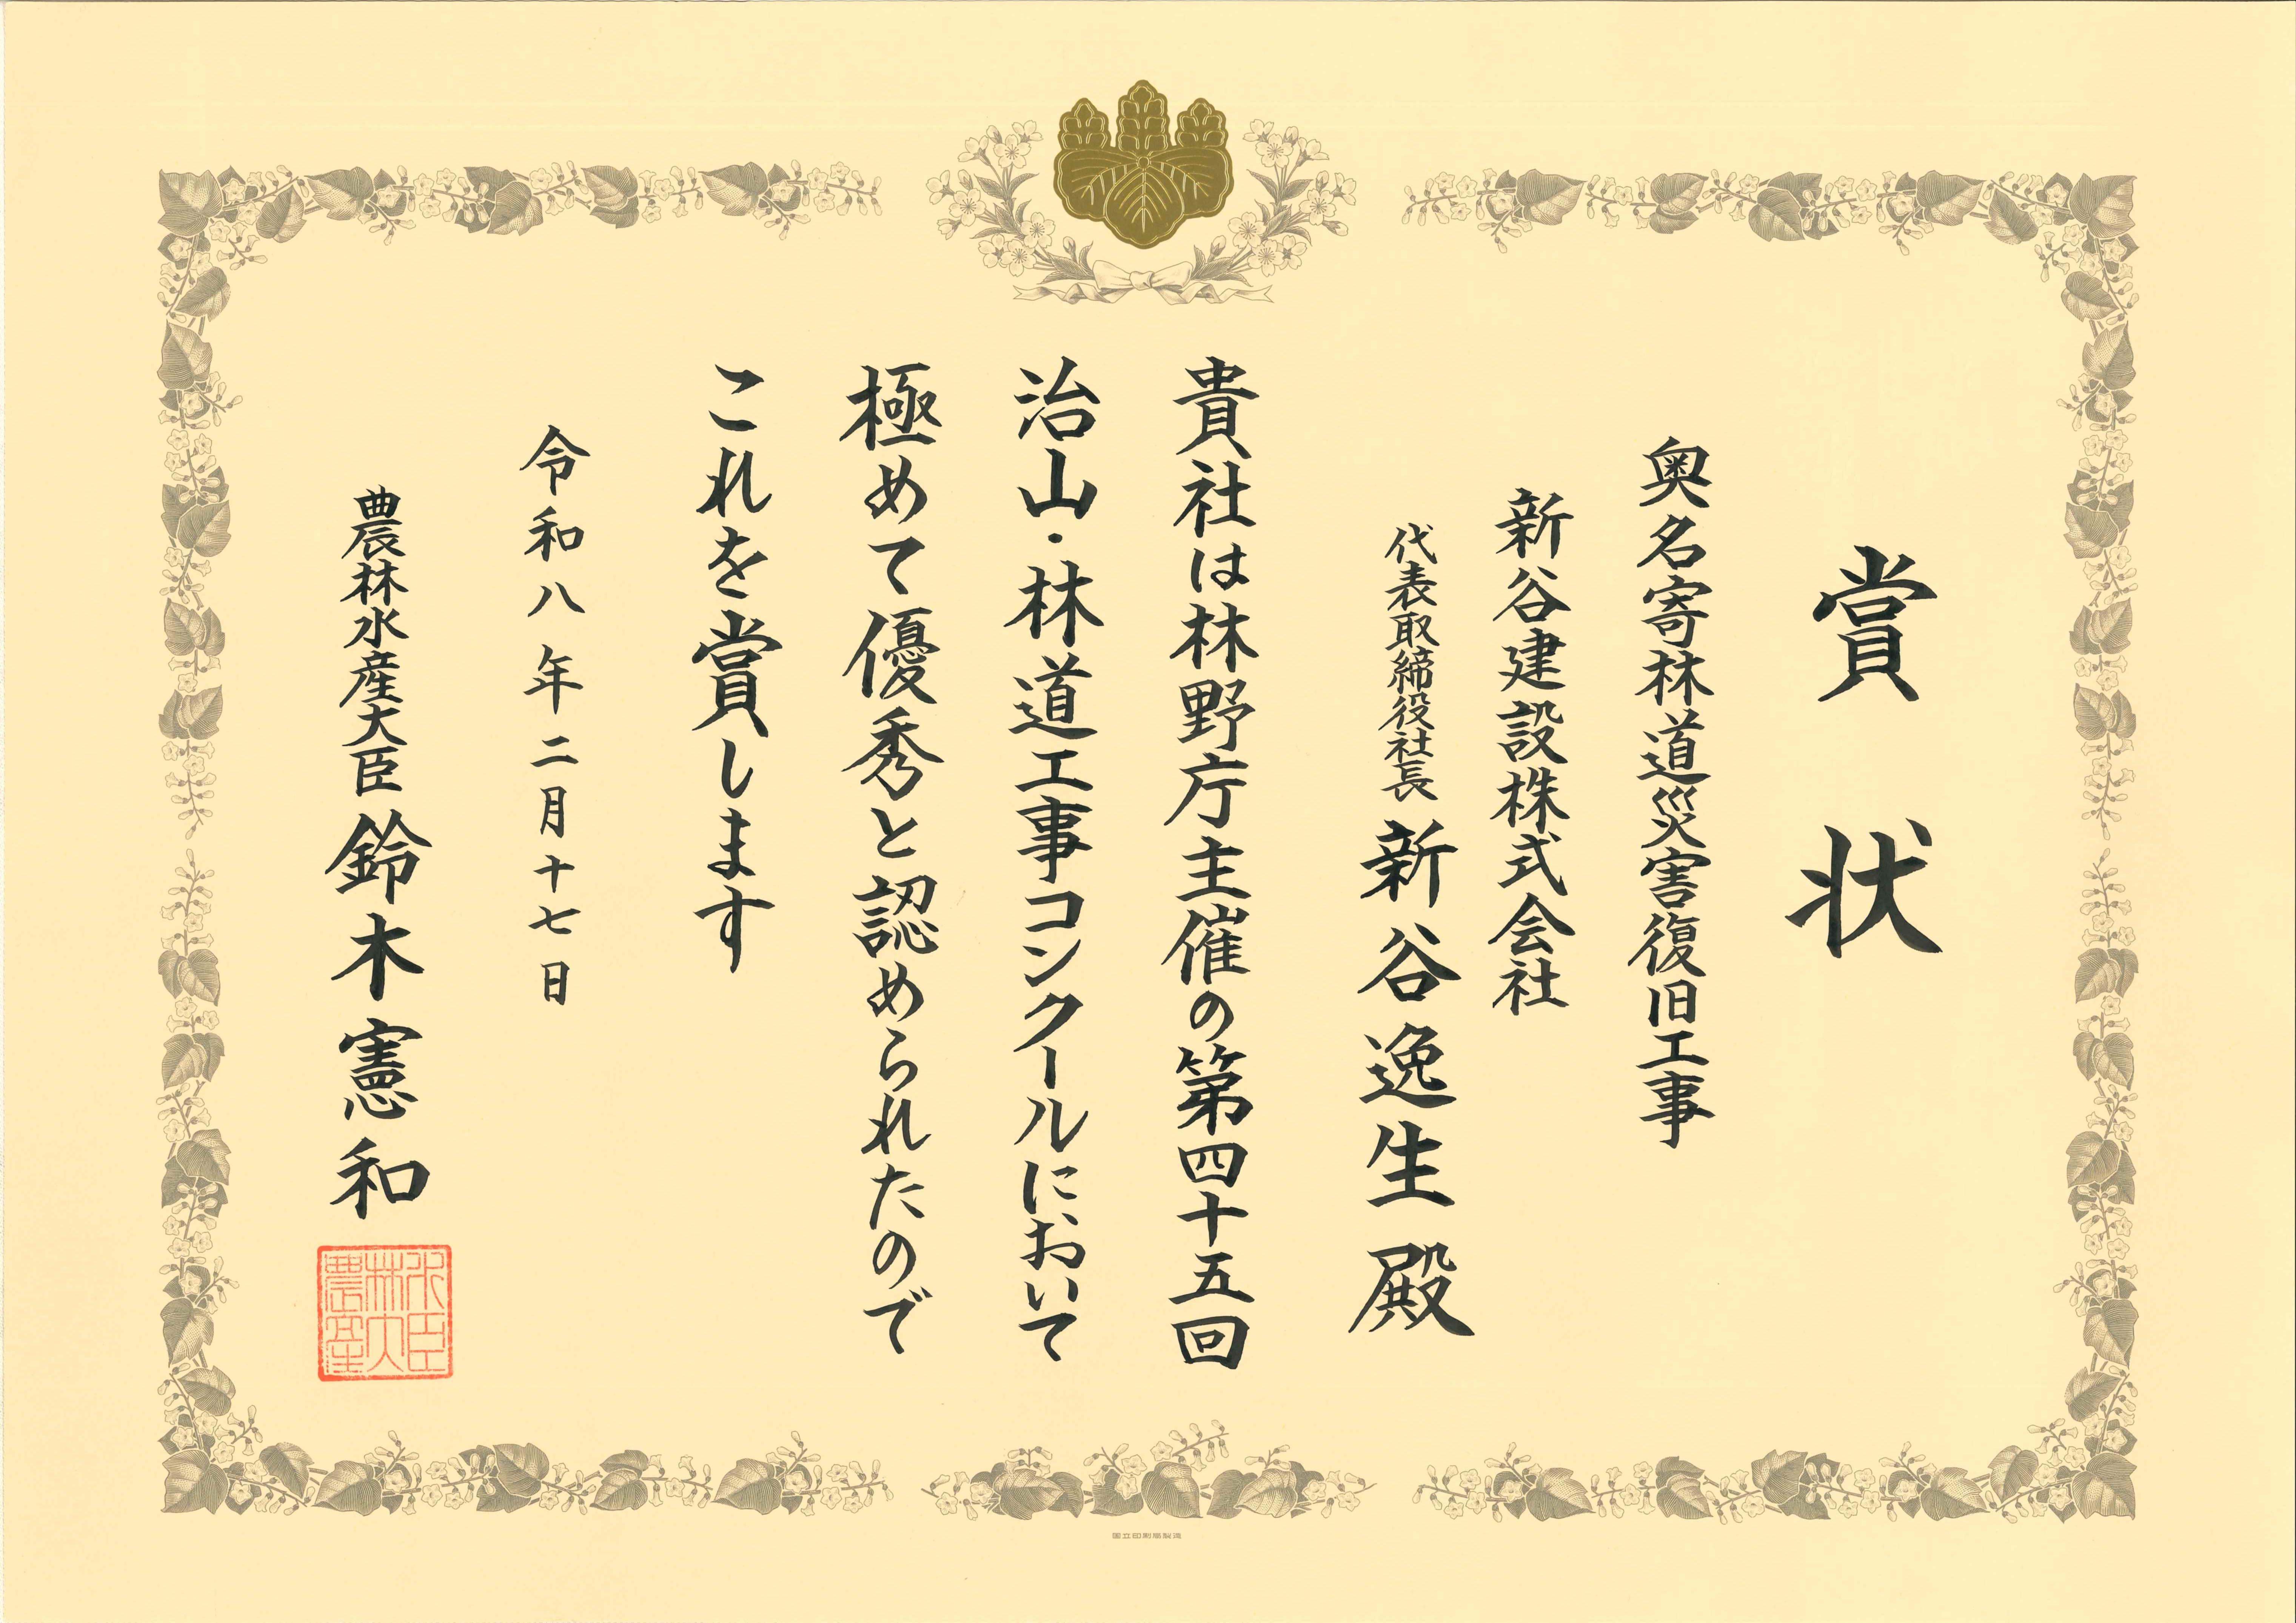 賞状
奥名寄林道災害復旧工事
新谷建設株式会社
代表取締役社長 新谷逸生 殿
貴社は林野庁主催の第四十五回
治山・林道工事コンクールにおいて
極めて優秀と認められたので
これを賞します
令和八年二月十七日
農林水産大臣 鈴木憲和
農林水産大臣
国立印刷局製造